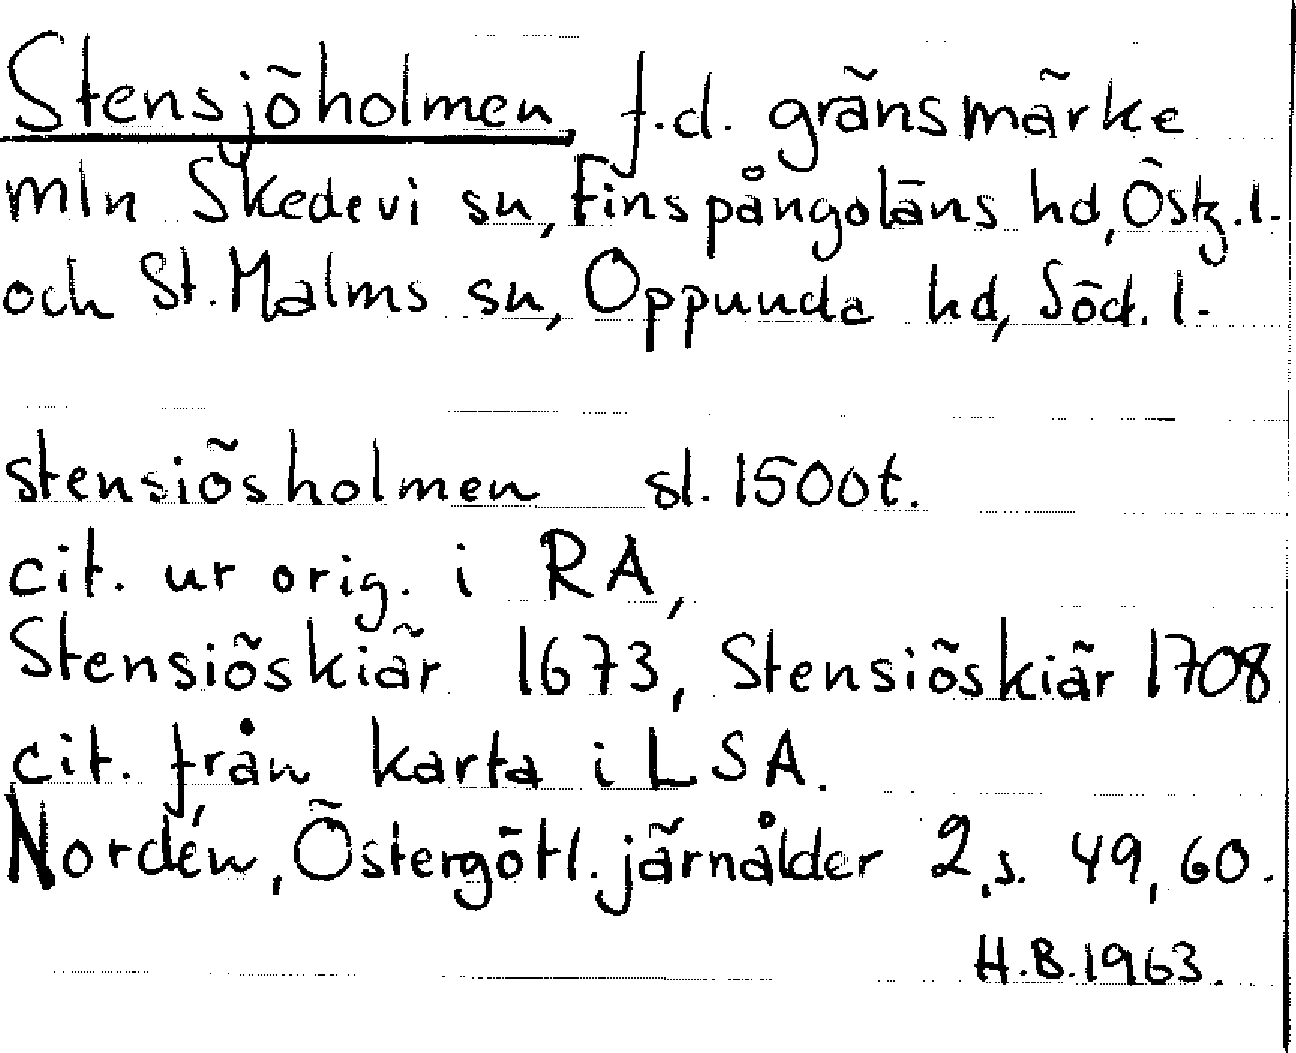 Stensjöholmen, f.d. gränsmärke
mln Skedevi sn, Finspångoläns hd, Östg.l.
och St. Malms sn, Oppunda hd, Söd. l.
stensiösholmen sl. 1500t.
cit. ur orig. i RA,
Stensiöskiär 1673, Stensiöskiär 1708
cit. från karta i LSA.
Nordén, Östergötl. järnålder 2, s. 49, 60.
H.B. 1963.